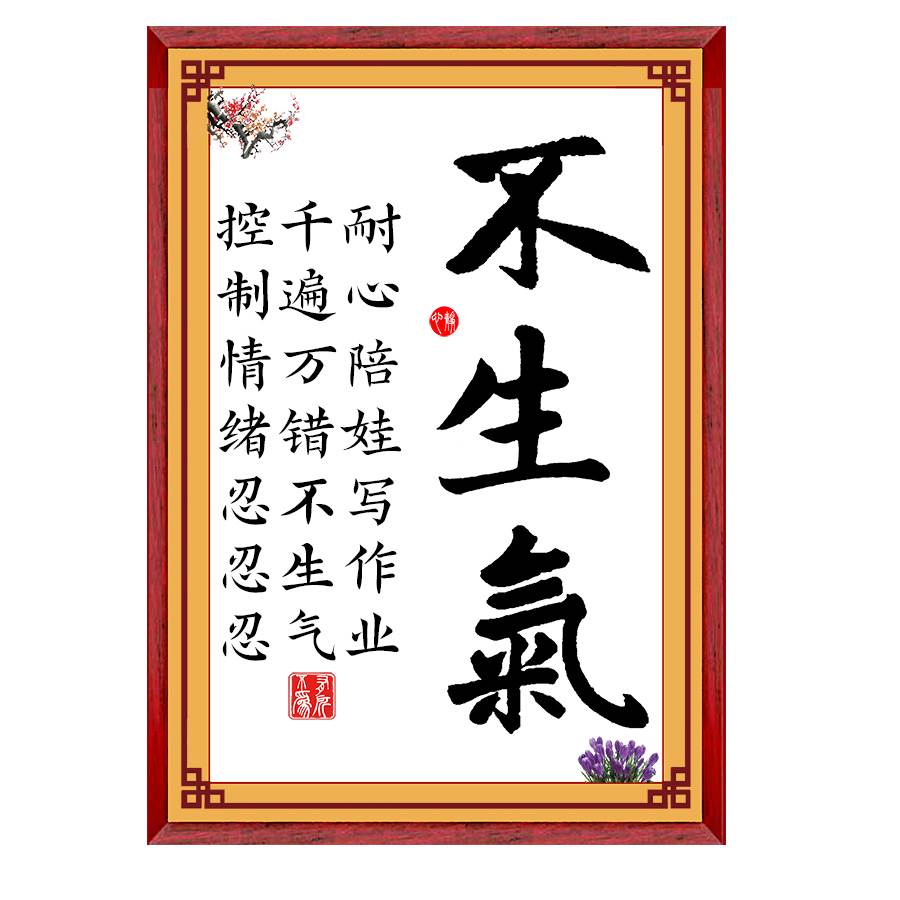 不生氣
耐心陪娃写作业
千遍万错不生气
控制情绪忍忍忍
静心